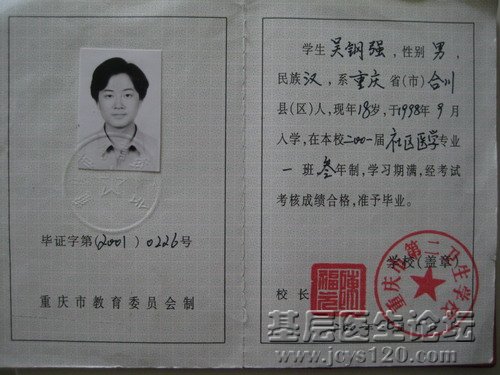 毕证字第(2001)0226号
重庆市教育委员会制
学生吴钢强，性别男，
民族汉，系重庆省(市)合川
县(区)人，现年18岁，于1998年9月
入学，在本校2001届社区医学专业
一班叁年制，学习期满，经考试
考核成绩合格，准予毕业。
学校(盖章)
校长
重庆市第二卫生学校
基层医生论坛
www.jcys120.com